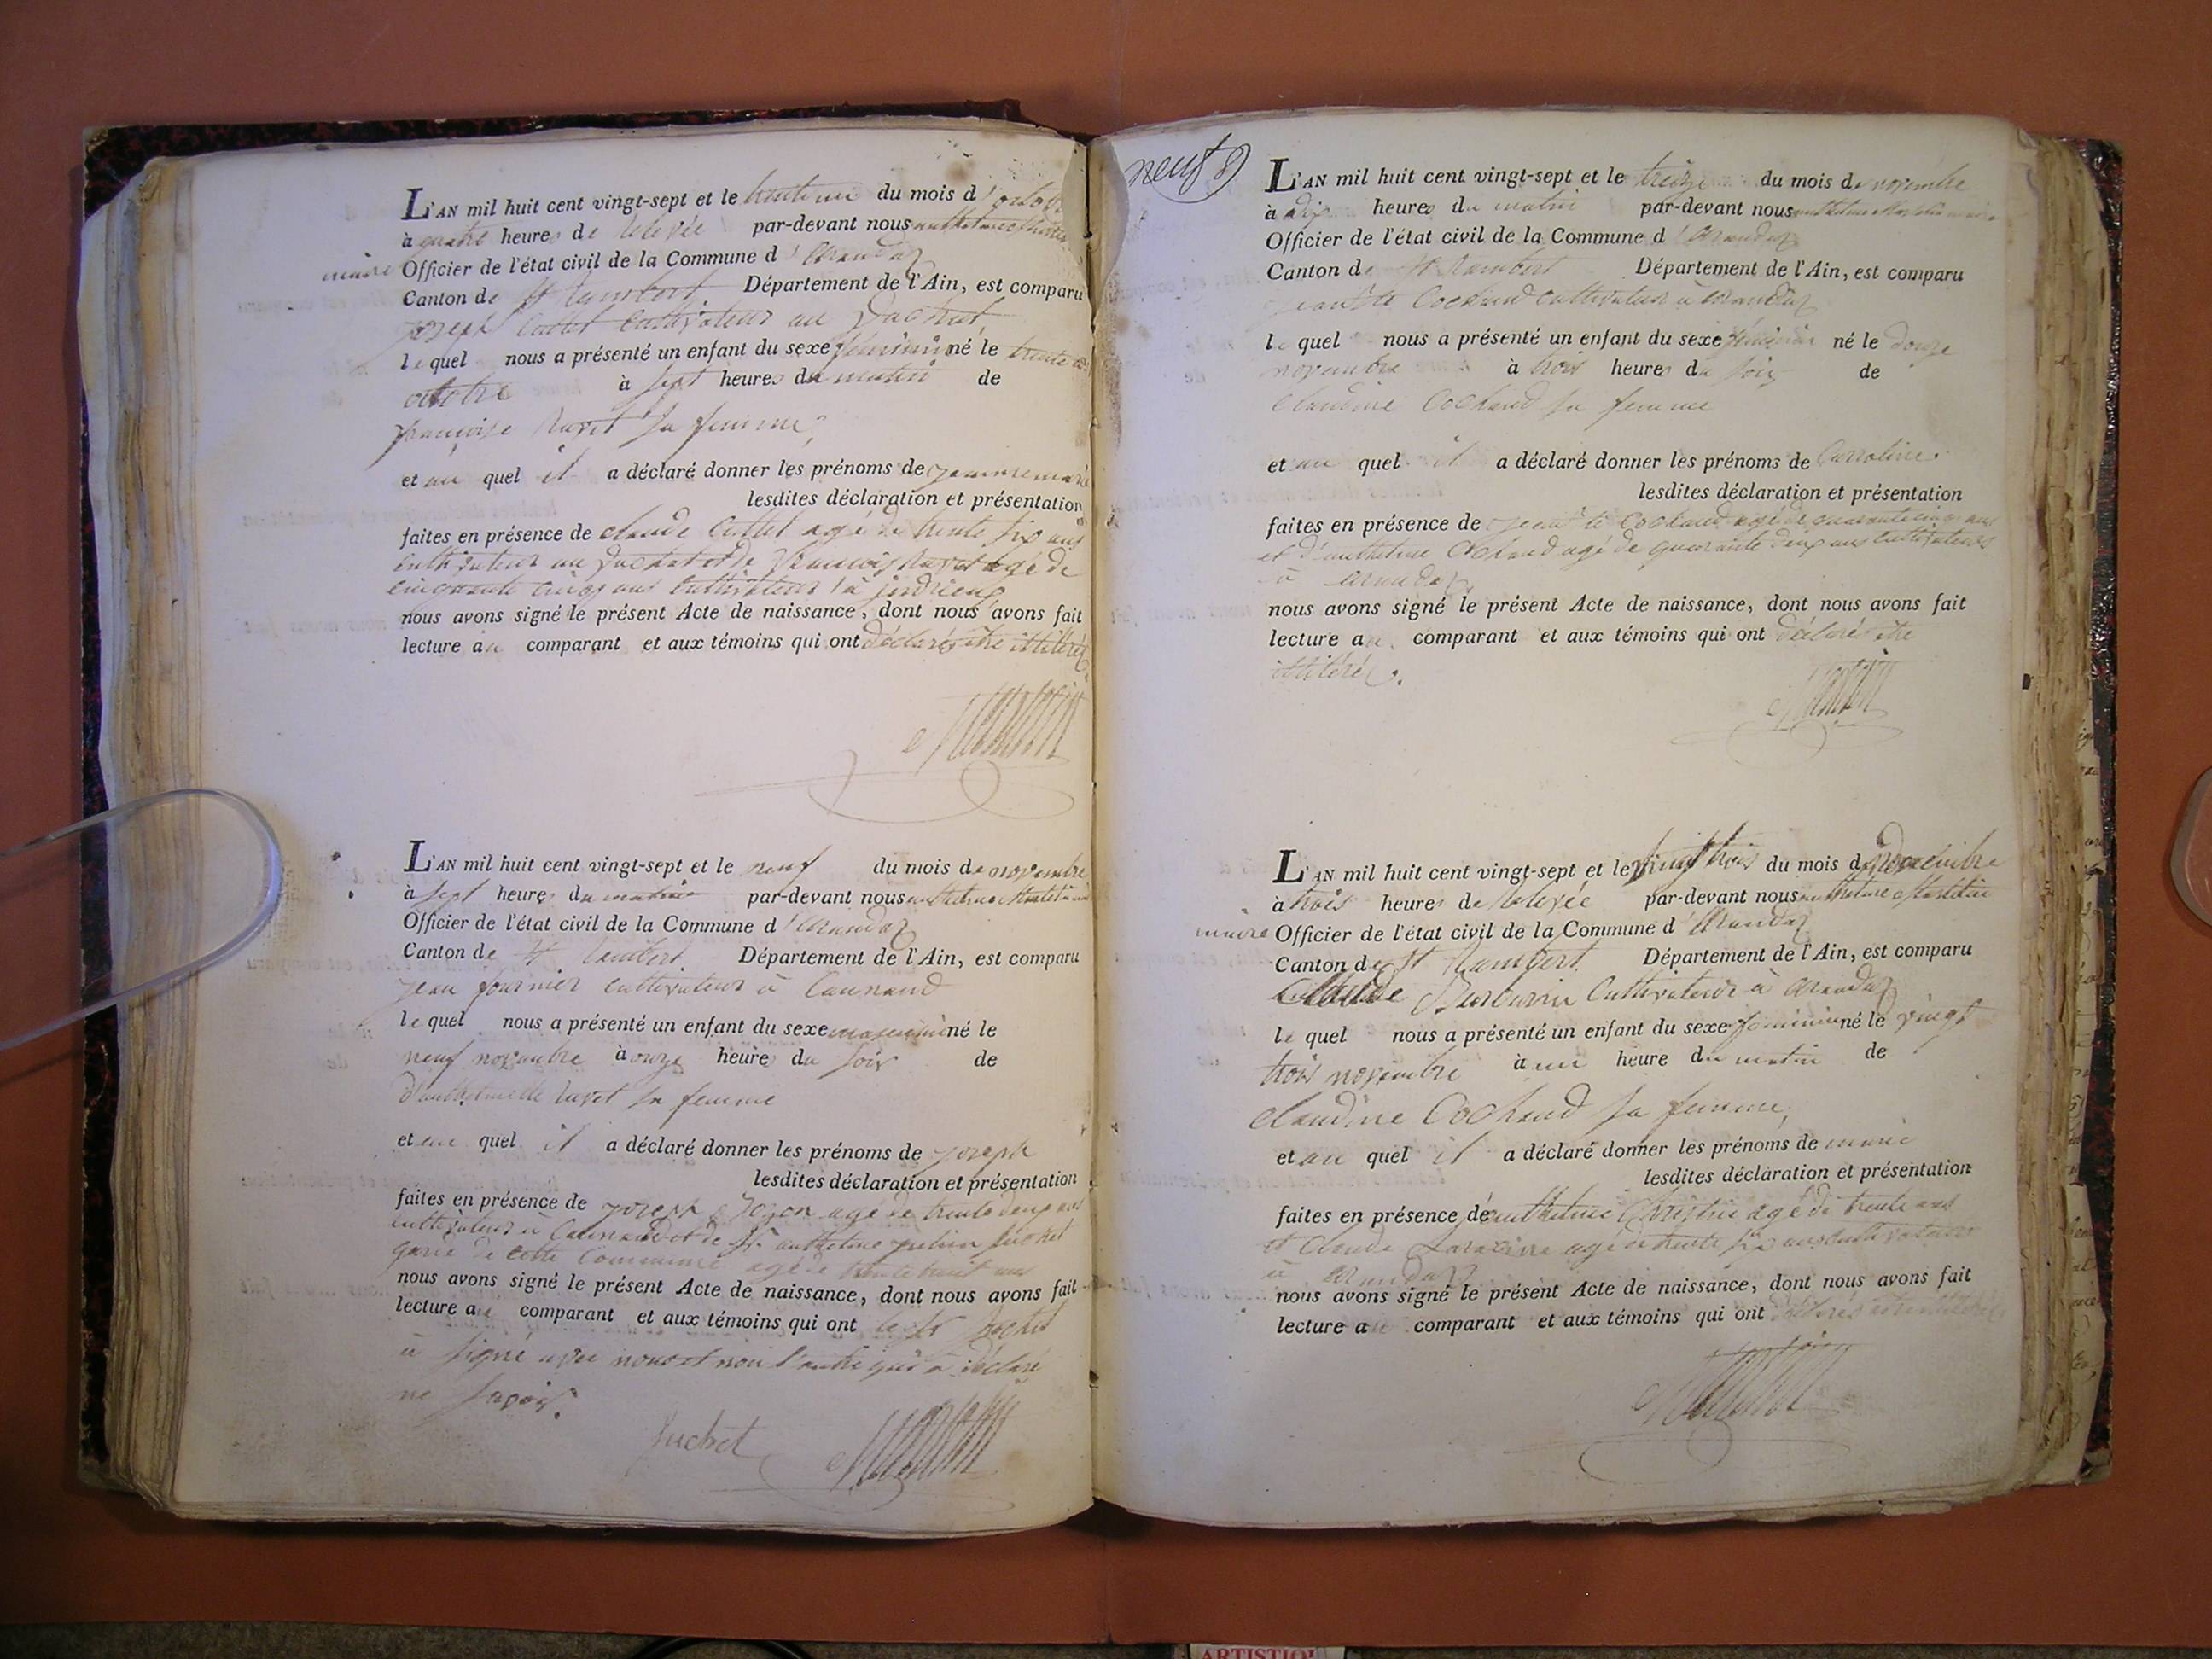 L'AN mil huit cent vingt-sept et le trente un du mois d'octobre
à quatre heures de relevée par-devant nous anthelme
maire Officier de l'état civil de la Commune d'Arandaz
Canton de St Rambert Département de l'Ain, est comparu
joseph Cultet cultivateur au
lequel nous a présenté un enfant du sexe féminin né le trente
octobre à sept heures du matin de
françoise Ravet sa femme,
et au quel il a déclaré donner les prénoms de jeanne marie
lesdites déclaration et présentation
faites en présence de claude Cultet agé de trente six ans
cultivateur au et de françois Ravet agé de
cinquante cinq ans cultivateur à indrieux
nous avons signé le présent Acte de naissance, dont nous avons fait
lecture au comparant et aux témoins qui ont déclarés être illitérés
L'AN mil huit cent vingt-sept et le neuf du mois de novembre
à sept heures du matin par-devant nous anthelme
Officier de l'état civil de la Commune d'Arandaz
Canton de St Rambert Département de l'Ain, est comparu
jean fournier cultivateur à
lequel nous a présenté un enfant du sexe masculin né le
neuf novembre à onze heures du soir de
d'anthelmette Ravet sa femme
et au quel il a déclaré donner les prénoms de joseph
lesdites déclaration et présentation
faites en présence de joseph agé de trente deux ans
cultivateur à et de Sr anthelme Juchet
de cette Commune agé de trente huit ans
nous avons signé le présent Acte de naissance, dont nous avons fait
lecture au comparant et aux témoins qui ont le Sr Juchet
a signé avec nous et non l'autre qui a déclaré
ne savoir.
Juchet
neuf 9
L'AN mil huit cent vingt-sept et le treize du mois de novembre
à dix heures du matin par-devant nous anthelme
Officier de l'état civil de la Commune d'Arandaz
Canton de St Rambert Département de l'Ain, est comparu
jean Bte Cochand cultivateur à Arandaz
lequel nous a présenté un enfant du sexe féminin né le douze
novembre à trois heures du soir de
Claudine Cochand sa femme
et au quel il a déclaré donner les prénoms de Carroline.
lesdites déclaration et présentation
faites en présence de jean Bte Cochand agé de quarante cinq ans
et d'anthelme Cochand agé de quarante deux ans cultivateurs
à Arandaz
nous avons signé le présent Acte de naissance, dont nous avons fait
lecture au comparant et aux témoins qui ont déclarés être
illitérés.
L'AN mil huit cent vingt-sept et le vingt trois du mois de novembre
à trois heures de relevée par-devant nous anthelme
maire Officier de l'état civil de la Commune d'Arandaz
Canton de St Rambert Département de l'Ain, est comparu
Claude cultivateur à Arandaz
lequel nous a présenté un enfant du sexe féminin né le vingt
trois novembre à un heure du matin de
claudine Cochand sa femme,
et au quel il a déclaré donner les prénoms de marie
lesdites déclaration et présentation
faites en présence de anthelme agé de trente ans
et Claude agé de trente six ans cultivateurs
à Arandaz
nous avons signé le présent Acte de naissance, dont nous avons fait
lecture au comparant et aux témoins qui ont